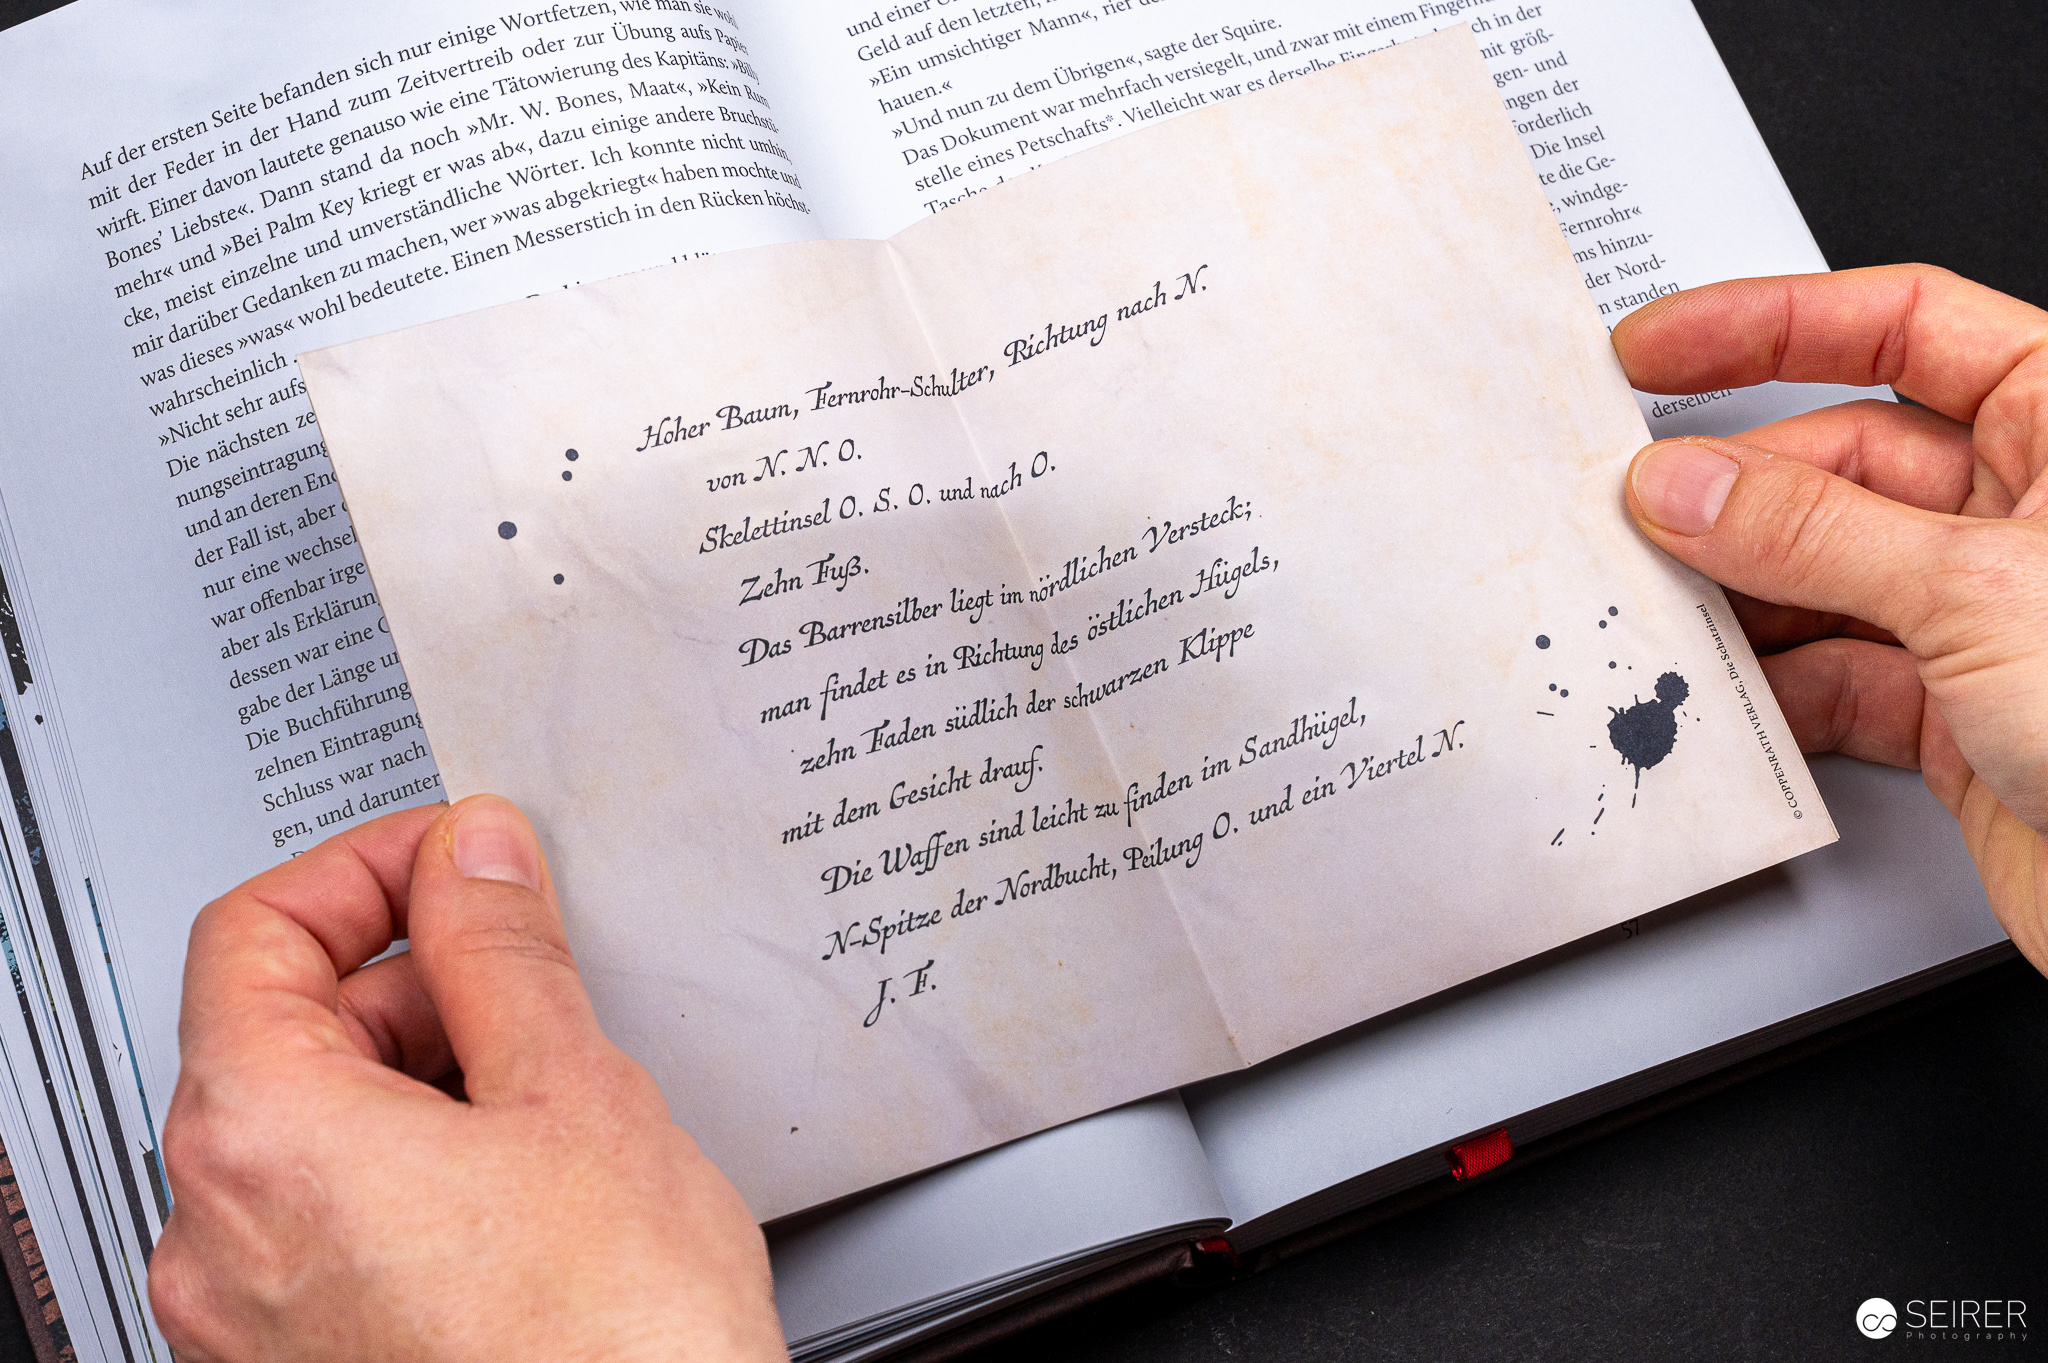 Auf der ersten Seite befanden sich nur einige Wortfetzen, wie man sie wohl
mit der Feder in der Hand zum Zeitvertreib oder zur Übung aufs Papier
wirft. Einer davon lautete genauso wie eine Tätowierung des Kapitäns: »Billy
Bones’ Liebste«. Dann stand da noch »Mr. W. Bones, Maat«, »Kein Rum
mehr« und »Bei Palm Key kriegt er was ab«, dazu einige andere Bruchstü-
cke, meist einzelne und unverständliche Wörter. Ich konnte nicht umhin,
mir darüber Gedanken zu machen, wer »was abgekriegt« haben mochte und
was dieses »was« wohl bedeutete. Einen Messerstich in den Rücken höchst-
wahrscheinlich
»Nicht sehr aufs
Die nächsten
nungseintragung
und an deren
der Fall ist, aber
nur eine wechsel
war offenbar
aber als Erklärung
dessen war eine
gabe der Länge
Die Buchführung
zelnen Eintragung
Schluss war nach
gen, und darunter
und einer
Geld auf den letzten,
»Ein umsichtiger Mann«, rief
hauen.«
»Und nun zu dem Übrigen«, sagte der Squire.
Das Dokument war mehrfach versiegelt, und zwar mit einem
stelle eines Petschafts*. Vielleicht war es derselbe
in der
mit größ-
gen- und
ngen der
forderlich
Die Insel
te die Ge-
windge-
Fernrohr«
ms hinzu-
der Nord-
n standen
derselben
Hoher Baum, Fernrohr-Schulter, Richtung nach N.
von N. N. O.
Skelettinsel O. S. O. und nach O.
Zehn Fuß.
Das Barrensilber liegt im nördlichen Versteck;
man findet es in Richtung des östlichen Hügels,
zehn Faden südlich der schwarzen Klippe
mit dem Gesicht drauf.
Die Waffen sind leicht zu finden im Sandhügel,
N-Spitze der Nordbucht, Peilung O. und ein Viertel N.
J. F.
© COPPENRATH VERLAG, Die Schatzinsel
57
SEIRER
Photography